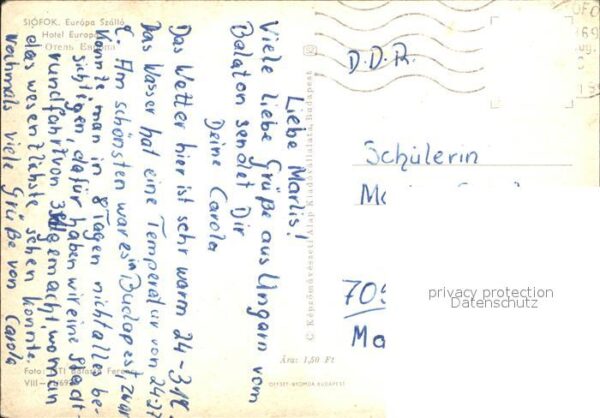 SIÓFOK. Európa Szálló
Hotel Europa
Отель Европа
Liebe Marlis!
Viele liebe Grüße aus Ungarn vom
Balaton sendet Dir
Deine Carola
Das Wetter hier ist sehr warm 24-31°C.
Das Wasser hat eine Temperatur von 24-27
C. Am schönsten war es in Budapest, zwar
konnte man in 8 Tagen nicht alles be-
sichtigen, dafür haben wir eine Stadt-
rundfahrt von 3 Std gemacht, wo man
das wesentlichste sehen konnte.
Nochmals viele Grüße von Carola
Foto: MTI Balassa Ferenc
VIII
© Képzőművészeti Alap Kiadóvállalata, Budapest
Ára: 1,50 Ft
OFFSET-NYOMDA BUDAPEST
D.D.R.
Schülerin
70
Ma
privacy protection
Datenschutz